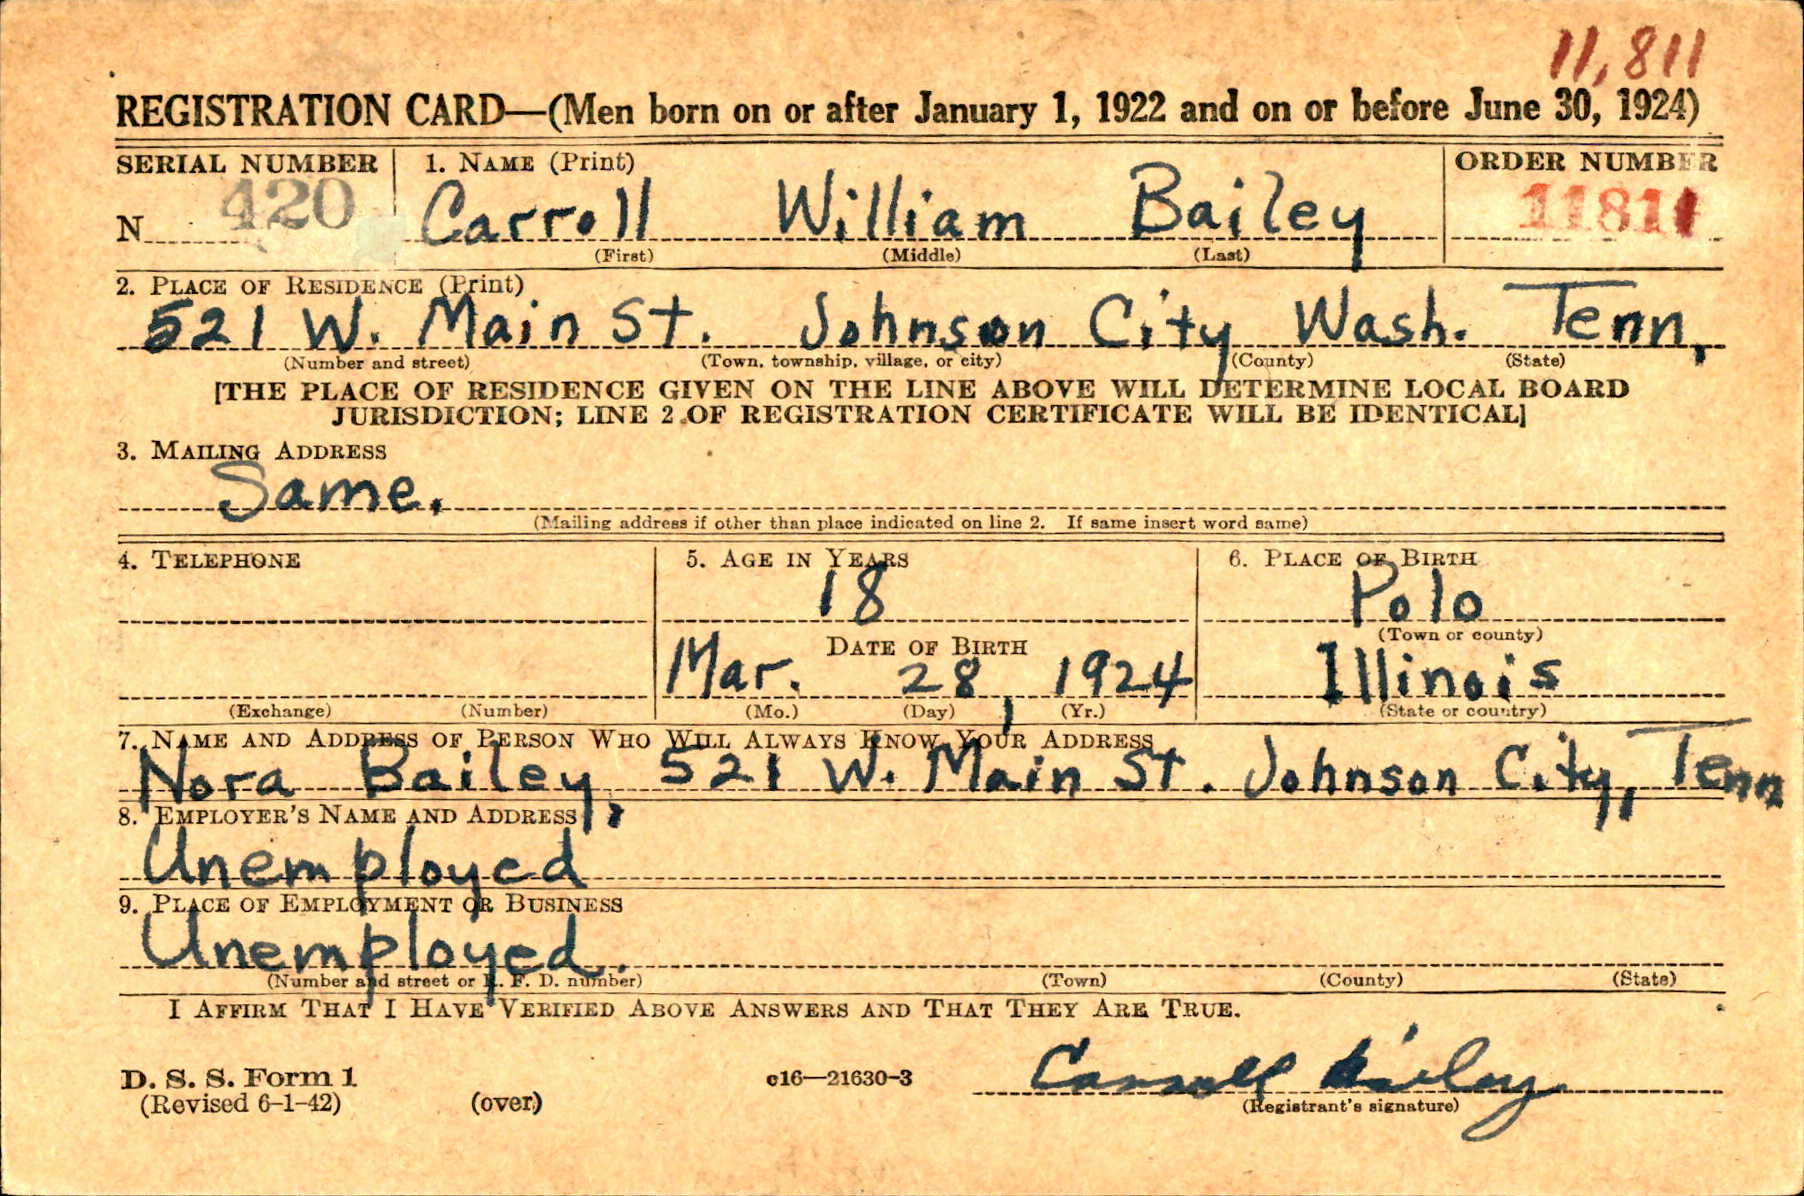 11,811
REGISTRATION CARD—(Men born on or after January 1, 1922 and on or before June 30, 1924)
SERIAL NUMBER 1. NAME (Print) ORDER NUMBER
N 420 Carroll William Bailey 11811
(First) (Middle) (Last)
2. PLACE OF RESIDENCE (Print)
521 W. Main St. Johnson City Wash. Tenn.
(Number and street) (Town, township, village, or city) (County) (State)
[THE PLACE OF RESIDENCE GIVEN ON THE LINE ABOVE WILL DETERMINE LOCAL BOARD
JURISDICTION; LINE 2 OF REGISTRATION CERTIFICATE WILL BE IDENTICAL]
3. MAILING ADDRESS
Same.
(Mailing address if other than place indicated on line 2. If same insert word same)
4. TELEPHONE 5. AGE IN YEARS 6. PLACE OF BIRTH
18 Polo
(Town or county)
DATE OF BIRTH
Mar. 28, 1924 Illinois
(Exchange) (Number) (Mo.) (Day) (Yr.) (State or country)
7. NAME AND ADDRESS OF PERSON WHO WILL ALWAYS KNOW YOUR ADDRESS
Nora Bailey, 521 W. Main St. Johnson City, Tenn
8. EMPLOYER'S NAME AND ADDRESS
Unemployed
9. PLACE OF EMPLOYMENT OR BUSINESS
Unemployed.
(Number and street or R. F. D. number) (Town) (County) (State)
I AFFIRM THAT I HAVE VERIFIED ABOVE ANSWERS AND THAT THEY ARE TRUE.
D. S. S. Form 1 c16—21630-3 Carroll Bailey
(Revised 6-1-42) (over) (Registrant's signature)